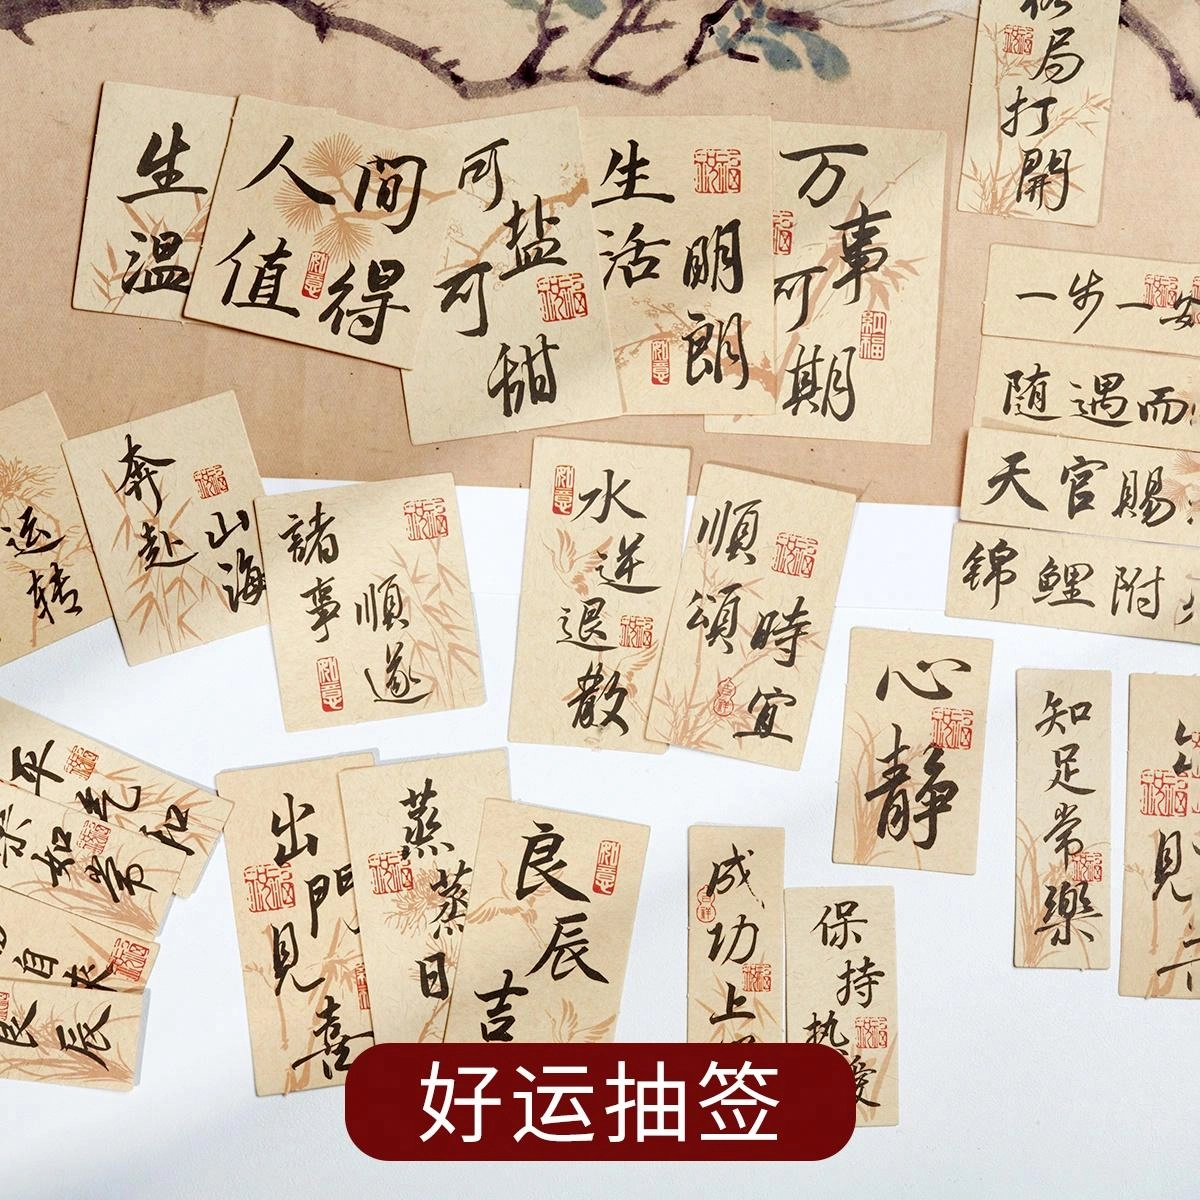 局
打
開
生
温
人間
值得
可盐
可甜
生活
明朗
万事
可期
一步一安
随遇而
天官賜
锦鲤附
运
转
奔赴
山海
諸事
順遂
水逆
退散
順頌
時宜
心
静
知足常樂
見
平
如常
自来
良辰
出門
見喜
蒸蒸
日
良辰
吉
成功上
保持
执愛
好运抽签